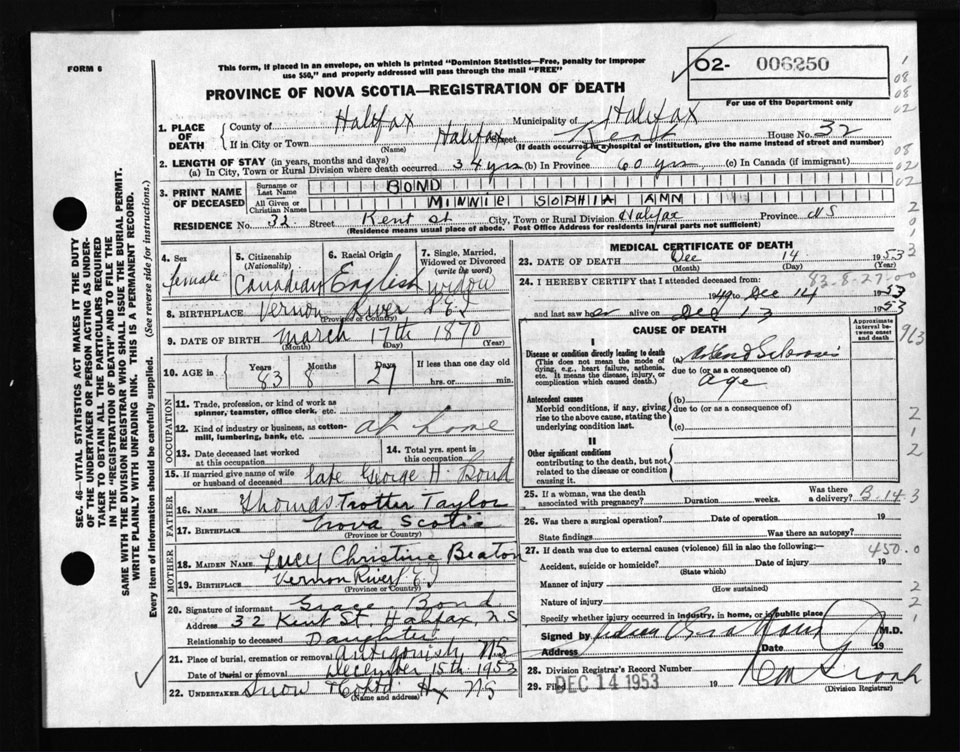 FORM 6
This form, if placed in an envelope, on which is printed "Dominion Statistics—Free, penalty for improper
use $50," and properly addressed will pass through the mail "FREE"
O2- 006250
For use of the Department only
PROVINCE OF NOVA SCOTIA—REGISTRATION OF DEATH
1. PLACE OF DEATH
County of Halifax Municipality of Halifax
If in City or Town Halifax Street Kent House No. 32
(Name) (If death occurred in a hospital or institution, give the name instead of street and number)
2. LENGTH OF STAY (in years, months and days)
(a) In City, Town or Rural Division where death occurred 34 yrs (b) In Province 60 yrs (c) In Canada (if immigrant)
3. PRINT NAME OF DECEASED
Surname or Last Name BOND
All Given or Christian Names MINNIE SOPHIA ANN
RESIDENCE No. 32 Street Kent St City, Town or Rural Division Halifax Province NS
(Residence means usual place of abode. Post Office Address for residents in rural parts not sufficient)
4. Sex female
5. Citizenship (Nationality) Canadian
6. Racial Origin English
7. Single, Married, Widowed or Divorced (write the word) widow
8. BIRTHPLACE Vernon River P.E.I
(Province or Country)
9. DATE OF BIRTH March 17th 1870
(Month) (Day) (Year)
10. AGE in Years 83 Months 8 Days 27 If less than one day old hrs. or min.
OCCUPATION
11. Trade, profession, or kind of work as spinner, teamster, office clerk, etc.
12. Kind of industry or business, as cotton-mill, lumbering, bank, etc. at home
13. Date deceased last worked at this occupation
14. Total yrs. spent in this occupation
15. If married give name of wife or husband of deceased late George H. Bond
FATHER
16. NAME Thomas Trotter Taylor
17. BIRTHPLACE Nova Scotia
(Province or Country)
MOTHER
18. MAIDEN NAME Lucy Christine Beaton
19. BIRTHPLACE Vernon River P.E.I
(Province or Country)
20. Signature of informant Grace Bond
Address 32 Kent St. Halifax, N.S
Relationship to deceased Daughter
21. Place of burial, cremation or removal Antigonish NS
Date of burial or removal December 15th 1953
22. UNDERTAKER Snow & Co Ltd. Hx NS
(Name and address)
MEDICAL CERTIFICATE OF DEATH
23. DATE OF DEATH Dec 14 1953
(Month) (Day) (Year)
83-8-27
24. I HEREBY CERTIFY that I attended deceased from:
1949 to Dec 14 1953
and last saw her alive on Dec 13 1953
CAUSE OF DEATH
Approximate interval between onset and death
I
Disease or condition directly leading to death (a)
(This does not mean the mode of dying, e.g., heart failure, asthenia, etc. It means the disease, injury, or complication which caused death.)
due to (or as a consequence of)
age
Antecedent causes
Morbid conditions, if any, giving rise to the above cause, stating the underlying condition last.
(b)
due to (or as a consequence of)
(c)
II
Other significant conditions contributing to the death, but not related to the disease or condition causing it.
25. If a woman, was the death associated with pregnancy? Duration weeks. Was there a delivery? B.14-3
26. Was there a surgical operation? Date of operation 19
State findings Was there an autopsy?
27. If death was due to external causes (violence) fill in also the following:— 450.0
Accident, suicide or homicide? Date of injury 19
(State which)
Manner of injury
(How sustained)
Nature of injury
Specify whether injury occurred in industry, in home, or in public place
Signed by M.D.
Address Date 19
28. Division Registrar's Record Number
29. Filed DEC 14 1953 19
(Division Registrar)
SEC. 46—VITAL STATISTICS ACT MAKES IT THE DUTY
OF THE UNDERTAKER OR PERSON ACTING AS UNDER-
TAKER TO OBTAIN ALL THE PARTICULARS REQUIRED
IN THE "REGISTRATION OF DEATH" AND TO FILE THE
SAME WITH THE DIVISION REGISTRAR WHO SHALL ISSUE THE BURIAL PERMIT.
WRITE PLAINLY WITH UNFADING INK. THIS IS A PERMANENT RECORD.
Every item of information should be carefully supplied. (See reverse side for instructions.)